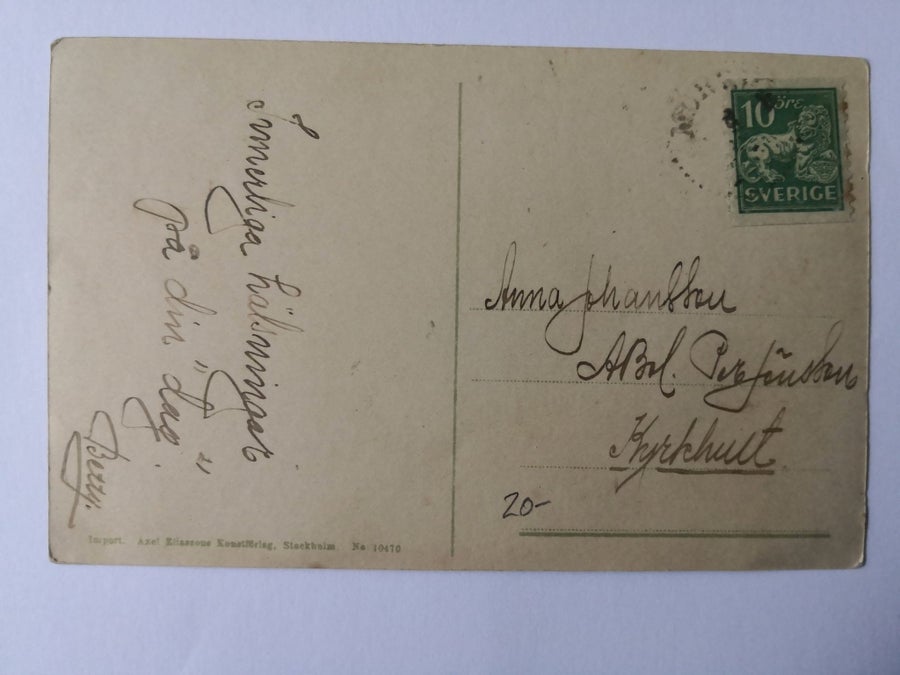 Innerliga hälsningar
på din "dag"
Betty.
10 öre
SVERIGE
Anna Johansson
Per Jönsson
Kyrkhult
20-
Import. Axel Eliassons Konstförlag, Stockholm. No 10470